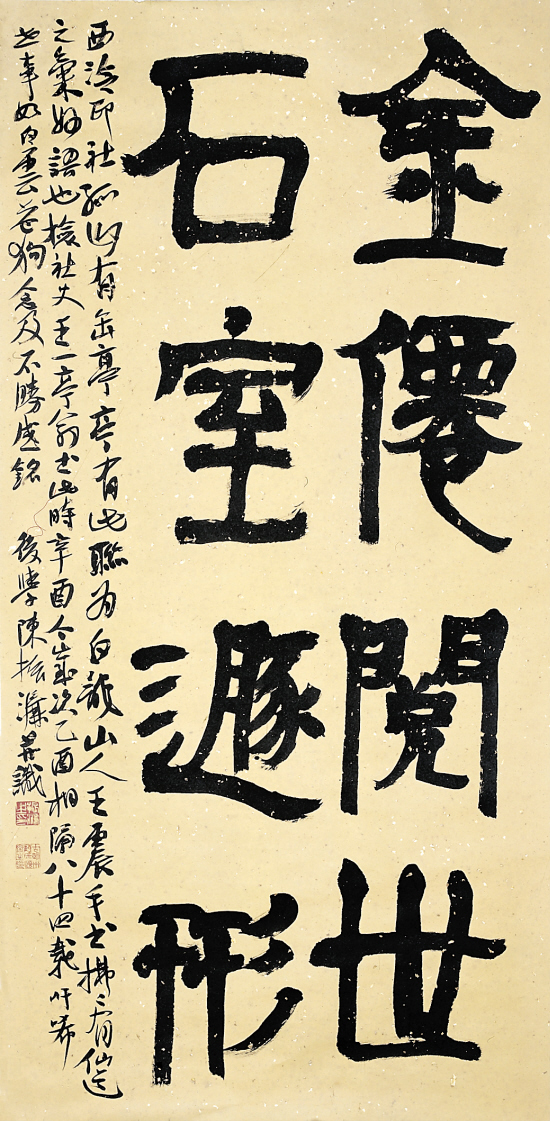 金僊閱世
石室遯形
西泠印社孤山有缶亭亭有此聯為白龍山人王震手書拂〻有仙道
之氣妙語也檢社史王一亭翁書此時辛酉今歲次乙酉相隔八十四載吁唏
世事如白雲蒼狗念及不勝感銘 後學陳振濂并識